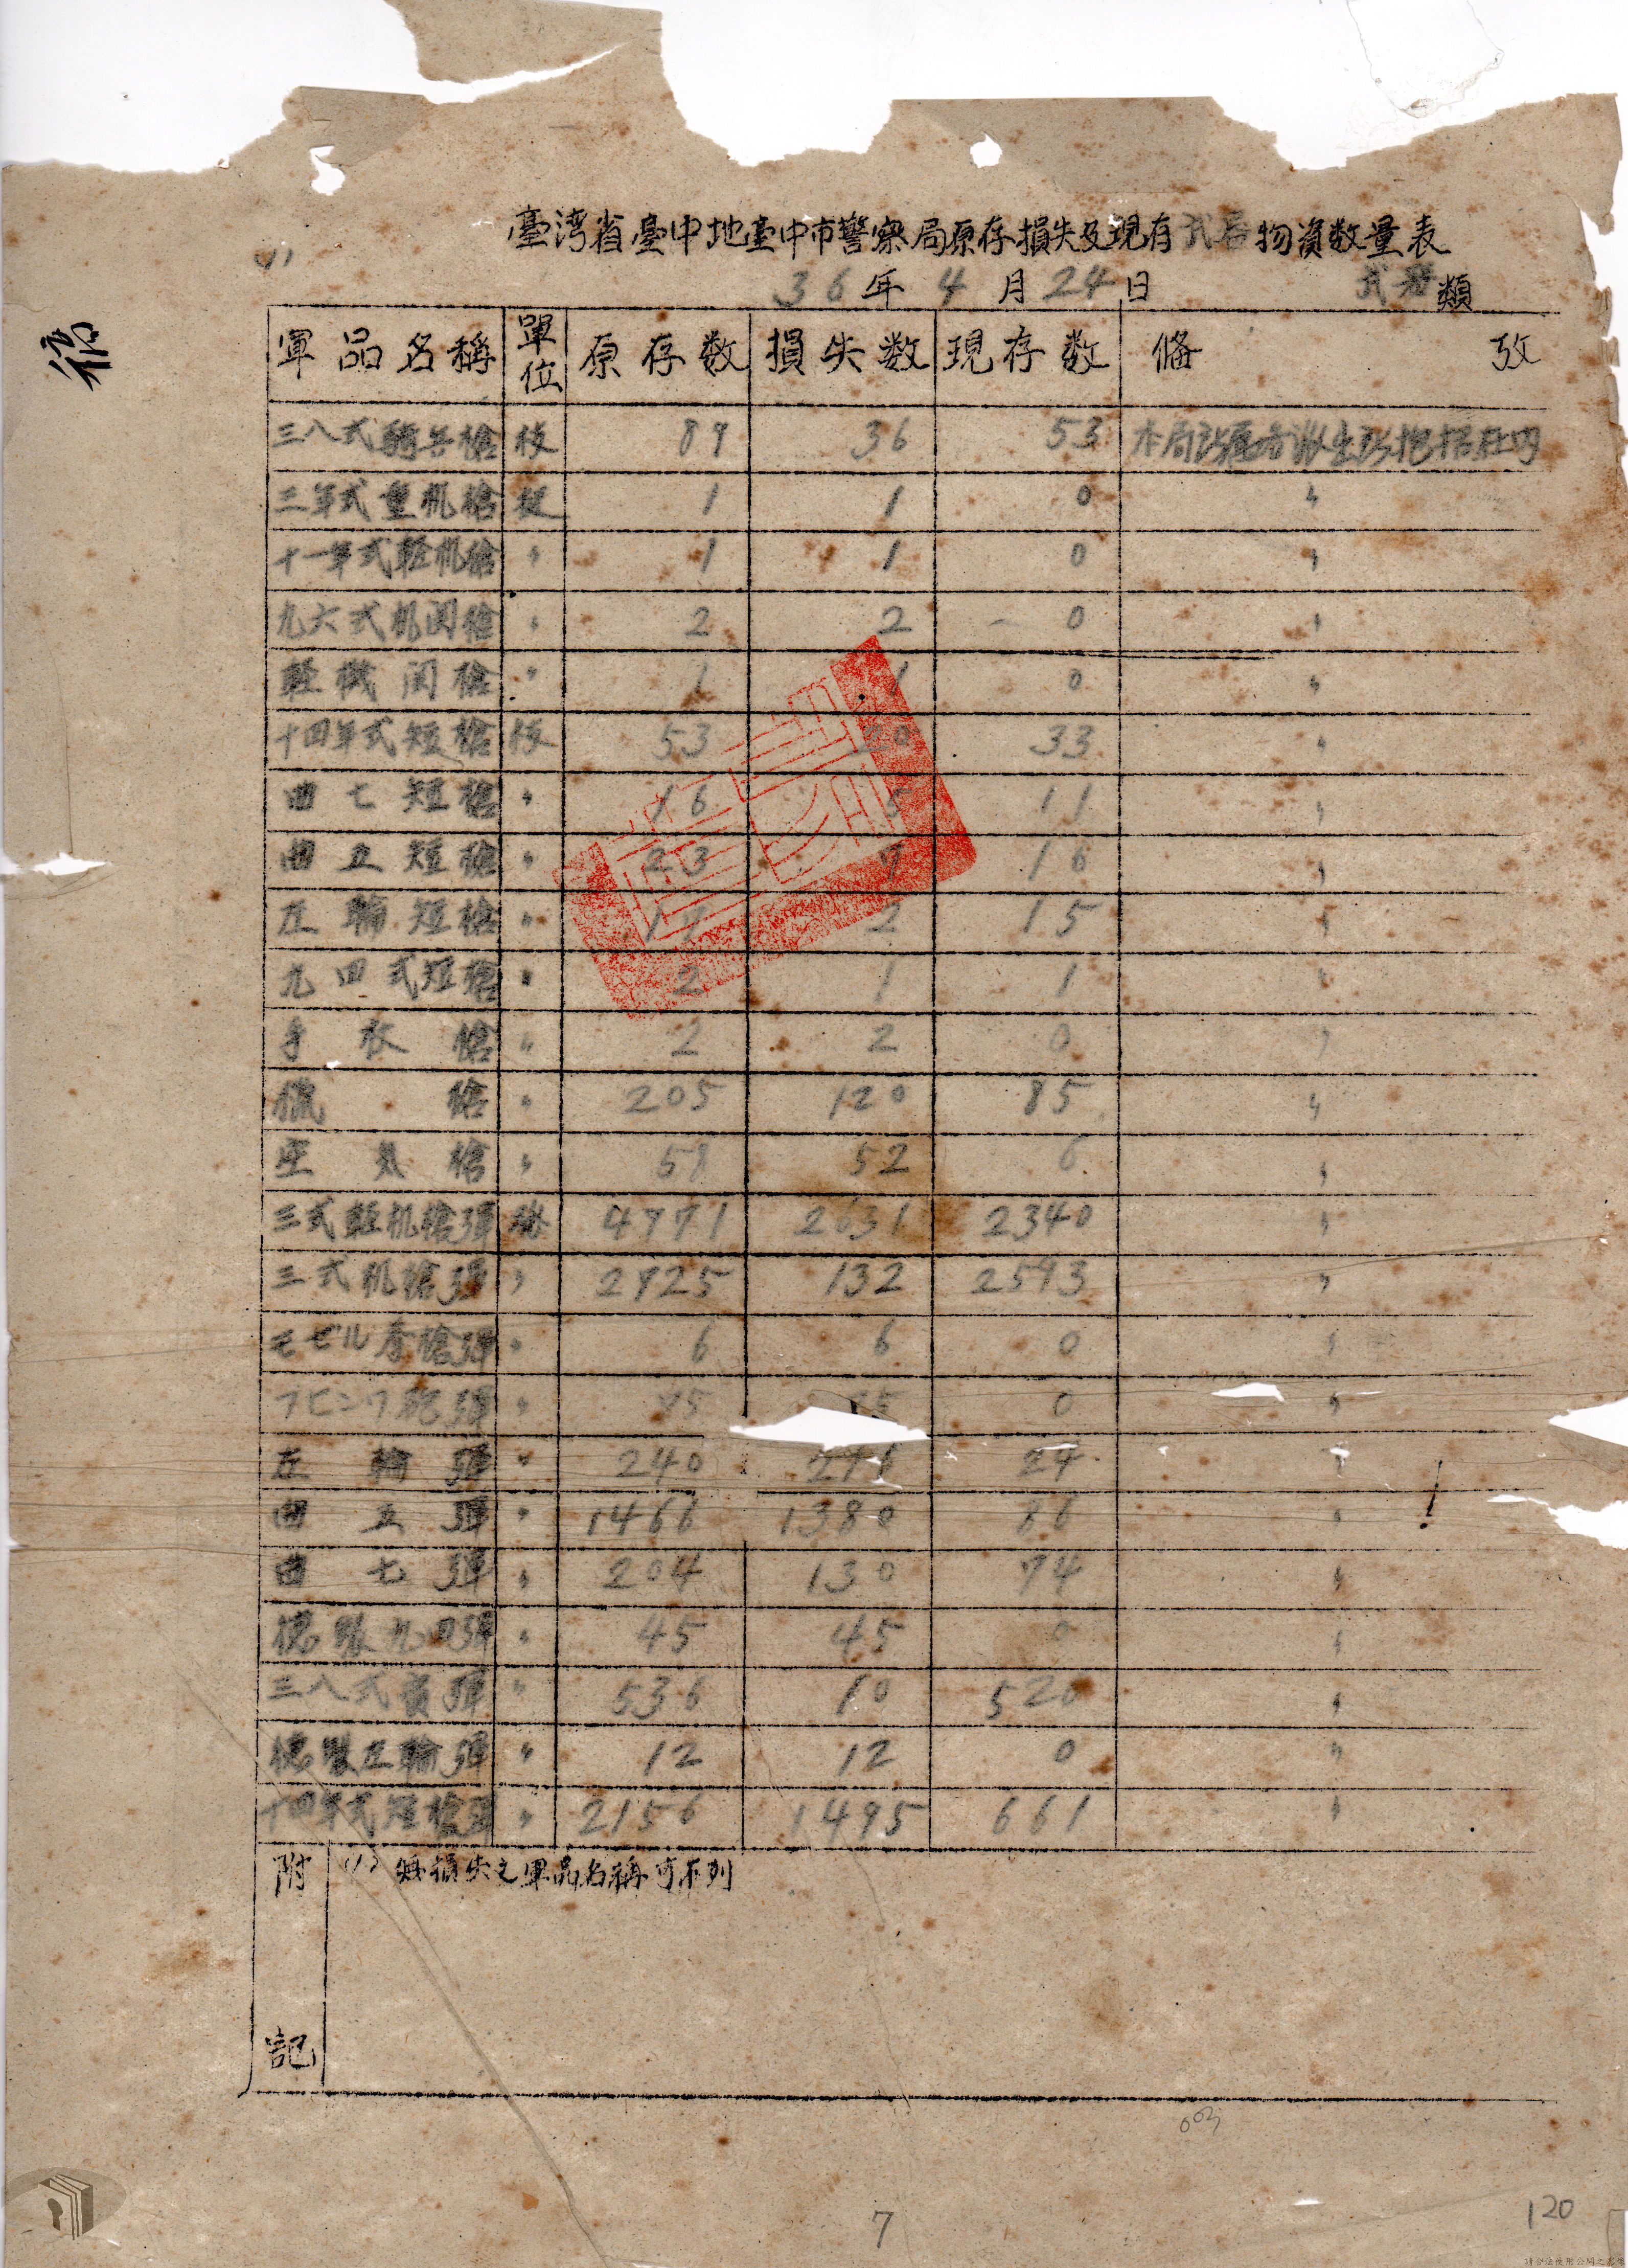 臺灣省臺中地臺中市警察局原存損失及現有武器物資数量表
(1)
36年4月24日 武器類
軍品名稱 單位 原存数 損失数 現存数 備攷
三八式騎兵槍 枝 89 36 53 本局
三年式重机槍 挺 1 1 0 〃
十一年式輕机槍 〃 1 1 0 〃
九六式机関槍 〃 2 2 0 〃
輕機関槍 〃 1 1 0 〃
十四年式短槍 枝 53 20 33 〃
曲七短槍 〃 16 5 11 〃
曲五短槍 〃 23 7 16 〃
左輪短槍 〃 17 2 15 〃
九四式短槍 〃 2 1 1 〃
手杖槍 〃 2 2 0 〃
獵槍 〃 205 120 85 〃
空気槍 〃 58 52 6 〃
三式輕机槍彈 4971 2631 2340 〃
三式机槍彈 〃 2725 132 2593 〃
モゼル拳槍彈 〃 6 6 0 〃
彈 〃 0 〃
左輪彈 〃 240 24 〃
曲五彈 〃 1466 1380 86 〃
曲七彈 〃 204 130 74 〃
德製 彈 〃 45 45 0 〃
三八式實彈 〃 536 10 526 〃
德製左輪彈 〃 12 12 0 〃
十四年式短槍彈 〃 2156 1495 661 〃
附記
(1) 無損失之軍品名稱可不列
003
7
120
請合法使用公開之影像